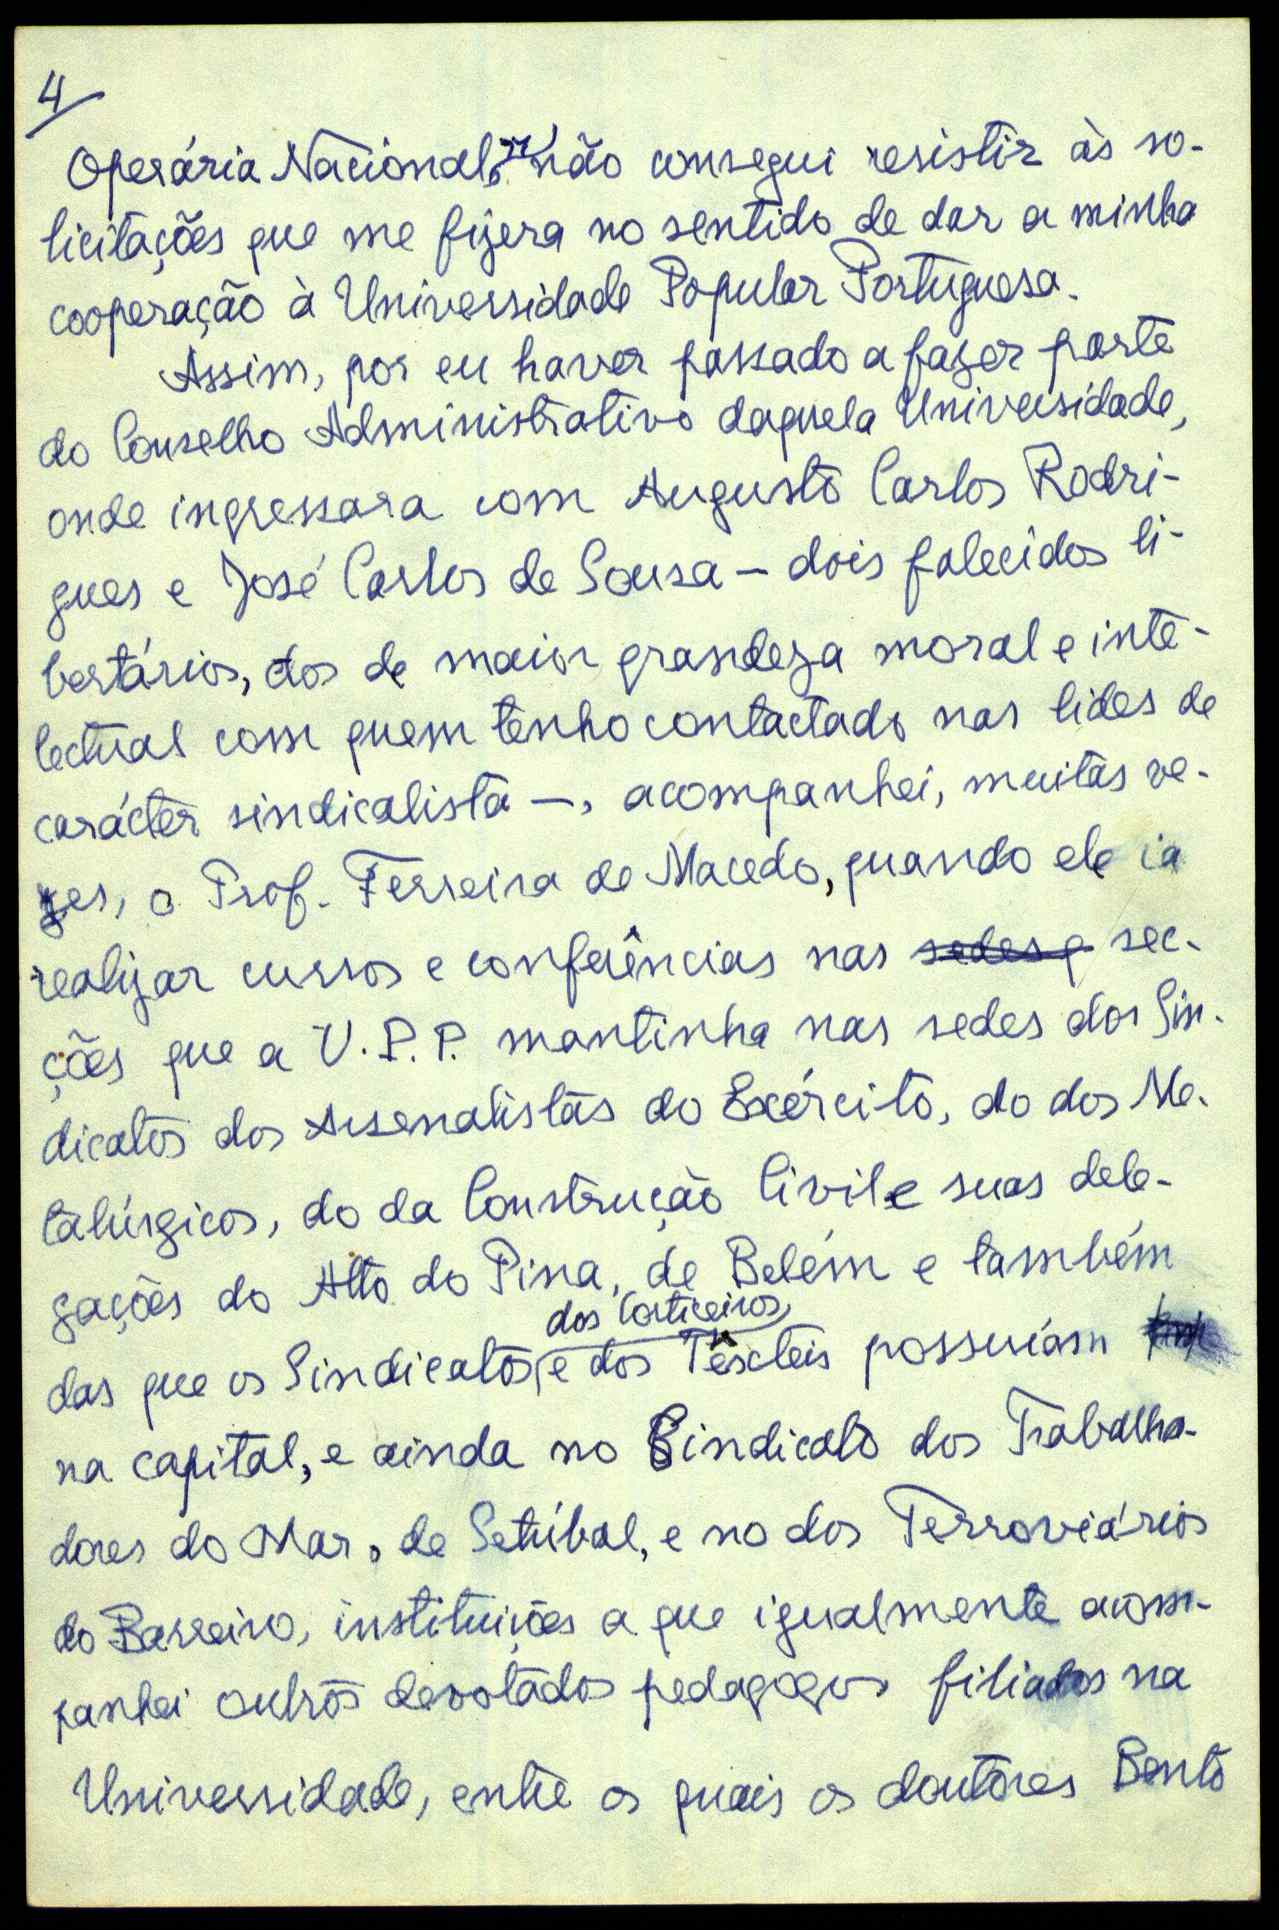 4
Operária Nacional, não consegui resistir às so-
licitações que me fizera no sentido de dar a minha
cooperação à Universidade Popular Portuguesa.
Assim, por eu haver passado a fazer parte
do Conselho Administrativo daquela Universidade,
onde ingressara com Augusto Carlos Rodri-
gues e José Carlos de Sousa — dois falecidos li-
bertários, dos de maior grandeza moral e inte-
lectual com quem tenho contactado nas lides de
carácter sindicalista —, acompanhei, muitas ve-
zes, o Prof. Ferreira de Macedo, quando ele ia
realizar cursos e conferências nas sedes e sec-
ções que a U.P.P. mantinha nas sedes dos Sin-
dicatos dos Arsenalistas do Exército, do dos Me-
talúrgicos, do da Construção Civil e suas dele-
gações do Alto do Pina, de Belém e também
dos Corticeiros
das que os Sindicatos e dos Têxteis possuíam
na capital, e ainda no Sindicato dos Trabalha-
dores do Mar, de Setúbal, e no dos Ferroviários
do Barreiro, instituições a que igualmente acom-
panhei outros devotados pedagogos filiados na
Universidade, entre os quais os doutores Bento